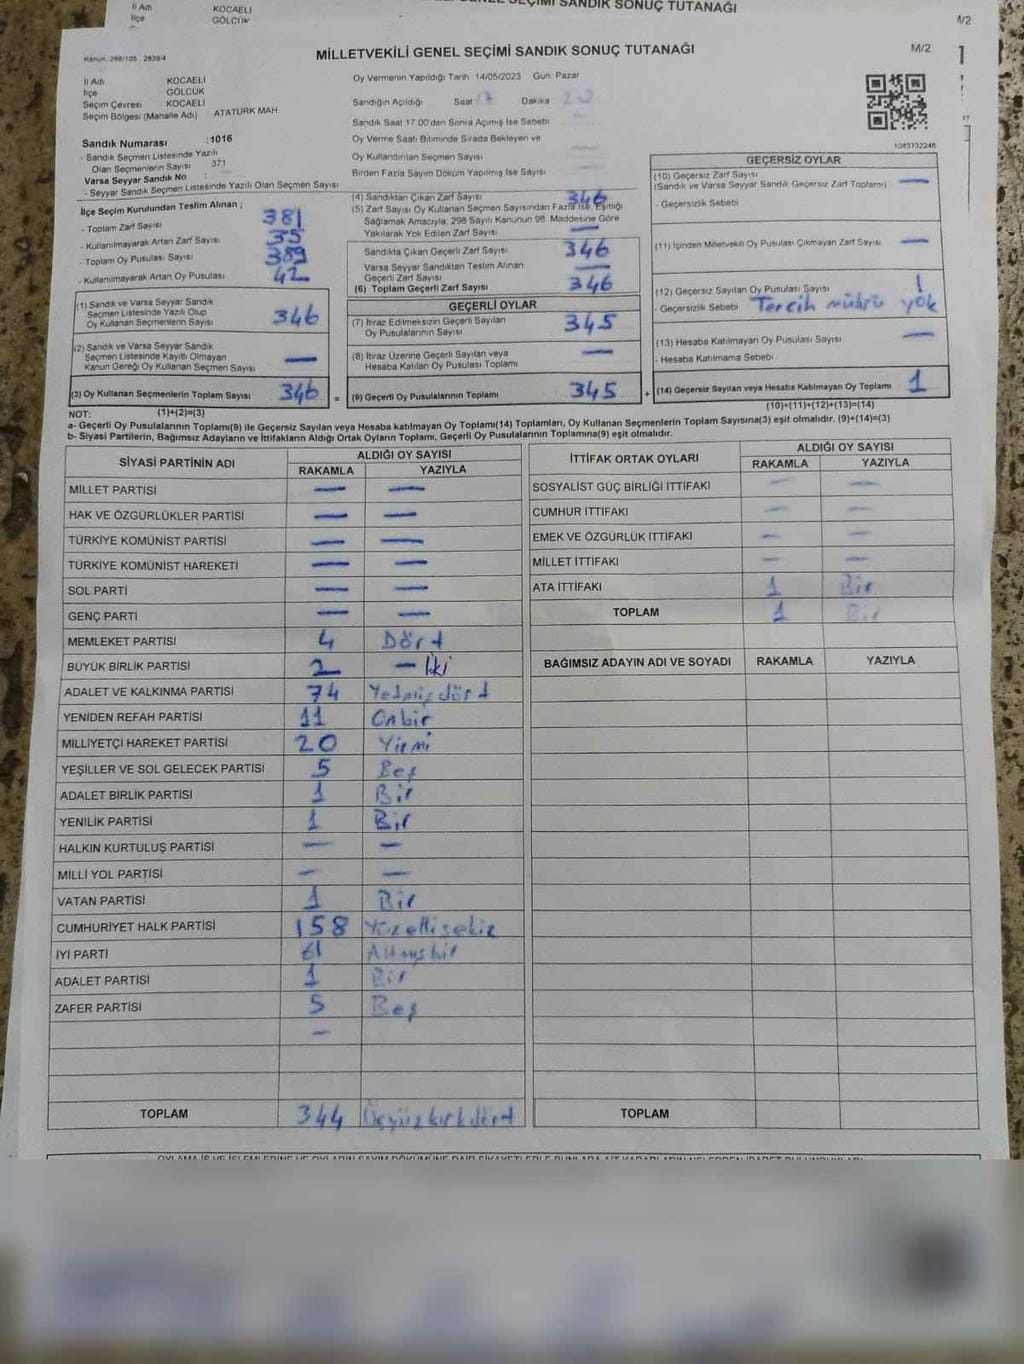 İl Adı KOCAELİ
İlçe GÖLCÜK
GENEL SEÇİMİ SANDIK SONUÇ TUTANAĞI
M/2
Kanun: 298/105 2839/4
MİLLETVEKİLİ GENEL SEÇİMİ SANDIK SONUÇ TUTANAĞI
M/2
İl Adı KOCAELİ
İlçe GÖLCÜK
Seçim Çevresi KOCAELİ
Seçim Bölgesi (Mahalle Adı) ATATÜRK MAH
Sandık Numarası :1016
- Sandık Seçmen Listesinde Yazılı
Olan Seçmenlerin Sayısı 371
Varsa Seyyar Sandık No :
- Seyyar Sandık Seçmen Listesinde Yazılı Olan Seçmen Sayısı
Oy Vermenin Yapıldığı Tarih 14/05/2023 Gün Pazar
Sandığın Açıldığı Saat 17 Dakika
Sandık Saat 17.00'den Sonra Açılmış İse Sebebi
Oy Verme Saati Bitiminde Sırada Bekleyen ve
Oy Kullandırılan Seçmen Sayısı
Birden Fazla Sayım Döküm Yapılmış İse Sayısı
1083732246
İlçe Seçim Kurulundan Teslim Alınan ;
- Toplam Zarf Sayısı 381
- Kullanılmayarak Artan Zarf Sayısı 35
- Toplam Oy Pusulası Sayısı 389
- Kullanılmayarak Artan Oy Pusulası 42
(1) Sandık ve Varsa Seyyar Sandık
Seçmen Listesinde Yazılı Olup
Oy Kullanan Seçmenlerin Sayısı 346
(2) Sandık ve Varsa Seyyar Sandık
Seçmen Listesinde Kayıtlı Olmayan
Kanun Gereği Oy Kullanan Seçmen Sayısı —
(3) Oy Kullanan Seçmenlerin Toplam Sayısı 346 =
(4) Sandıktan Çıkan Zarf Sayısı 346
(5) Zarf Sayısı Oy Kullanan Seçmen Sayısından Fazla İse, Eşitliği
Sağlamak Amacıyla, 298 Sayılı Kanunun 98. Maddesine Göre
Yakılarak Yok Edilen Zarf Sayısı —
Sandıkta Çıkan Geçerli Zarf Sayısı 346
Varsa Seyyar Sandıktan Teslim Alınan
Geçerli Zarf Sayısı —
(6) Toplam Geçerli Zarf Sayısı 346
GEÇERLİ OYLAR
(7) İtiraz Edilmeksizin Geçerli Sayılan
Oy Pusulalarının Sayısı 345
(8) İtiraz Üzerine Geçerli Sayılan veya
Hesaba Katılan Oy Pusulası Toplamı —
(9) Geçerli Oy Pusulalarının Toplamı 345 +
GEÇERSİZ OYLAR
(10) Geçersiz Zarf Sayısı
(Sandık ve Varsa Seyyar Sandık Geçersiz Zarf Toplamı) —
- Geçersizlik Sebebi
(11) İçinden Milletvekili Oy Pusulası Çıkmayan Zarf Sayısı —
(12) Geçersiz Sayılan Oy Pusulası Sayısı 1
- Geçersizlik Sebebi Tercih mührü yok
(13) Hesaba Katılmayan Oy Pusulası Sayısı —
- Hesaba Katılmama Sebebi
(14) Geçersiz Sayılan veya Hesaba Katılmayan Oy Toplamı 1
NOT: (1)+(2)=(3) (10)+(11)+(12)+(13)=(14)
a- Geçerli Oy Pusulalarının Toplamı(9) ile Geçersiz Sayılan veya Hesaba katılmayan Oy Toplamı(14) Toplamları, Oy Kullanan Seçmenlerin Toplam Sayısına(3) eşit olmalıdır. (9)+(14)=(3)
b- Siyasi Partilerin, Bağımsız Adayların ve İttifakların Aldığı Ortak Oyların Toplamı, Geçerli Oy Pusulalarının Toplamına(9) eşit olmalıdır.
SİYASİ PARTİNİN ADI ALDIĞI OY SAYISI
RAKAMLA YAZIYLA
MİLLET PARTİSİ — —
HAK VE ÖZGÜRLÜKLER PARTİSİ — —
TÜRKİYE KOMÜNİST PARTİSİ — —
TÜRKİYE KOMÜNİST HAREKETİ — —
SOL PARTİ — —
GENÇ PARTİ — —
MEMLEKET PARTİSİ 4 Dört
BÜYÜK BİRLİK PARTİSİ 2 — İki
ADALET VE KALKINMA PARTİSİ 74 Yetmişdört
YENİDEN REFAH PARTİSİ 11 Onbir
MİLLİYETÇİ HAREKET PARTİSİ 20 Yirmi
YEŞİLLER VE SOL GELECEK PARTİSİ 5 Beş
ADALET BİRLİK PARTİSİ 1 Bir
YENİLİK PARTİSİ 1 Bir
HALKIN KURTULUŞ PARTİSİ — —
MİLLİ YOL PARTİSİ — —
VATAN PARTİSİ 1 Bir
CUMHURİYET HALK PARTİSİ 158 Yüzellisekiz
İYİ PARTİ 61 Altmışbir
ADALET PARTİSİ 1 Bir
ZAFER PARTİSİ 5 Beş
—
TOPLAM 344 Üçyüzkırkdört
İTTİFAK ORTAK OYLARI ALDIĞI OY SAYISI
RAKAMLA YAZIYLA
SOSYALİST GÜÇ BİRLİĞİ İTTİFAKI — —
CUMHUR İTTİFAKI — —
EMEK VE ÖZGÜRLÜK İTTİFAKI — —
MİLLET İTTİFAKI — —
ATA İTTİFAKI 1 Bir
TOPLAM 1 Bir
BAĞIMSIZ ADAYIN ADI VE SOYADI RAKAMLA YAZIYLA
TOPLAM